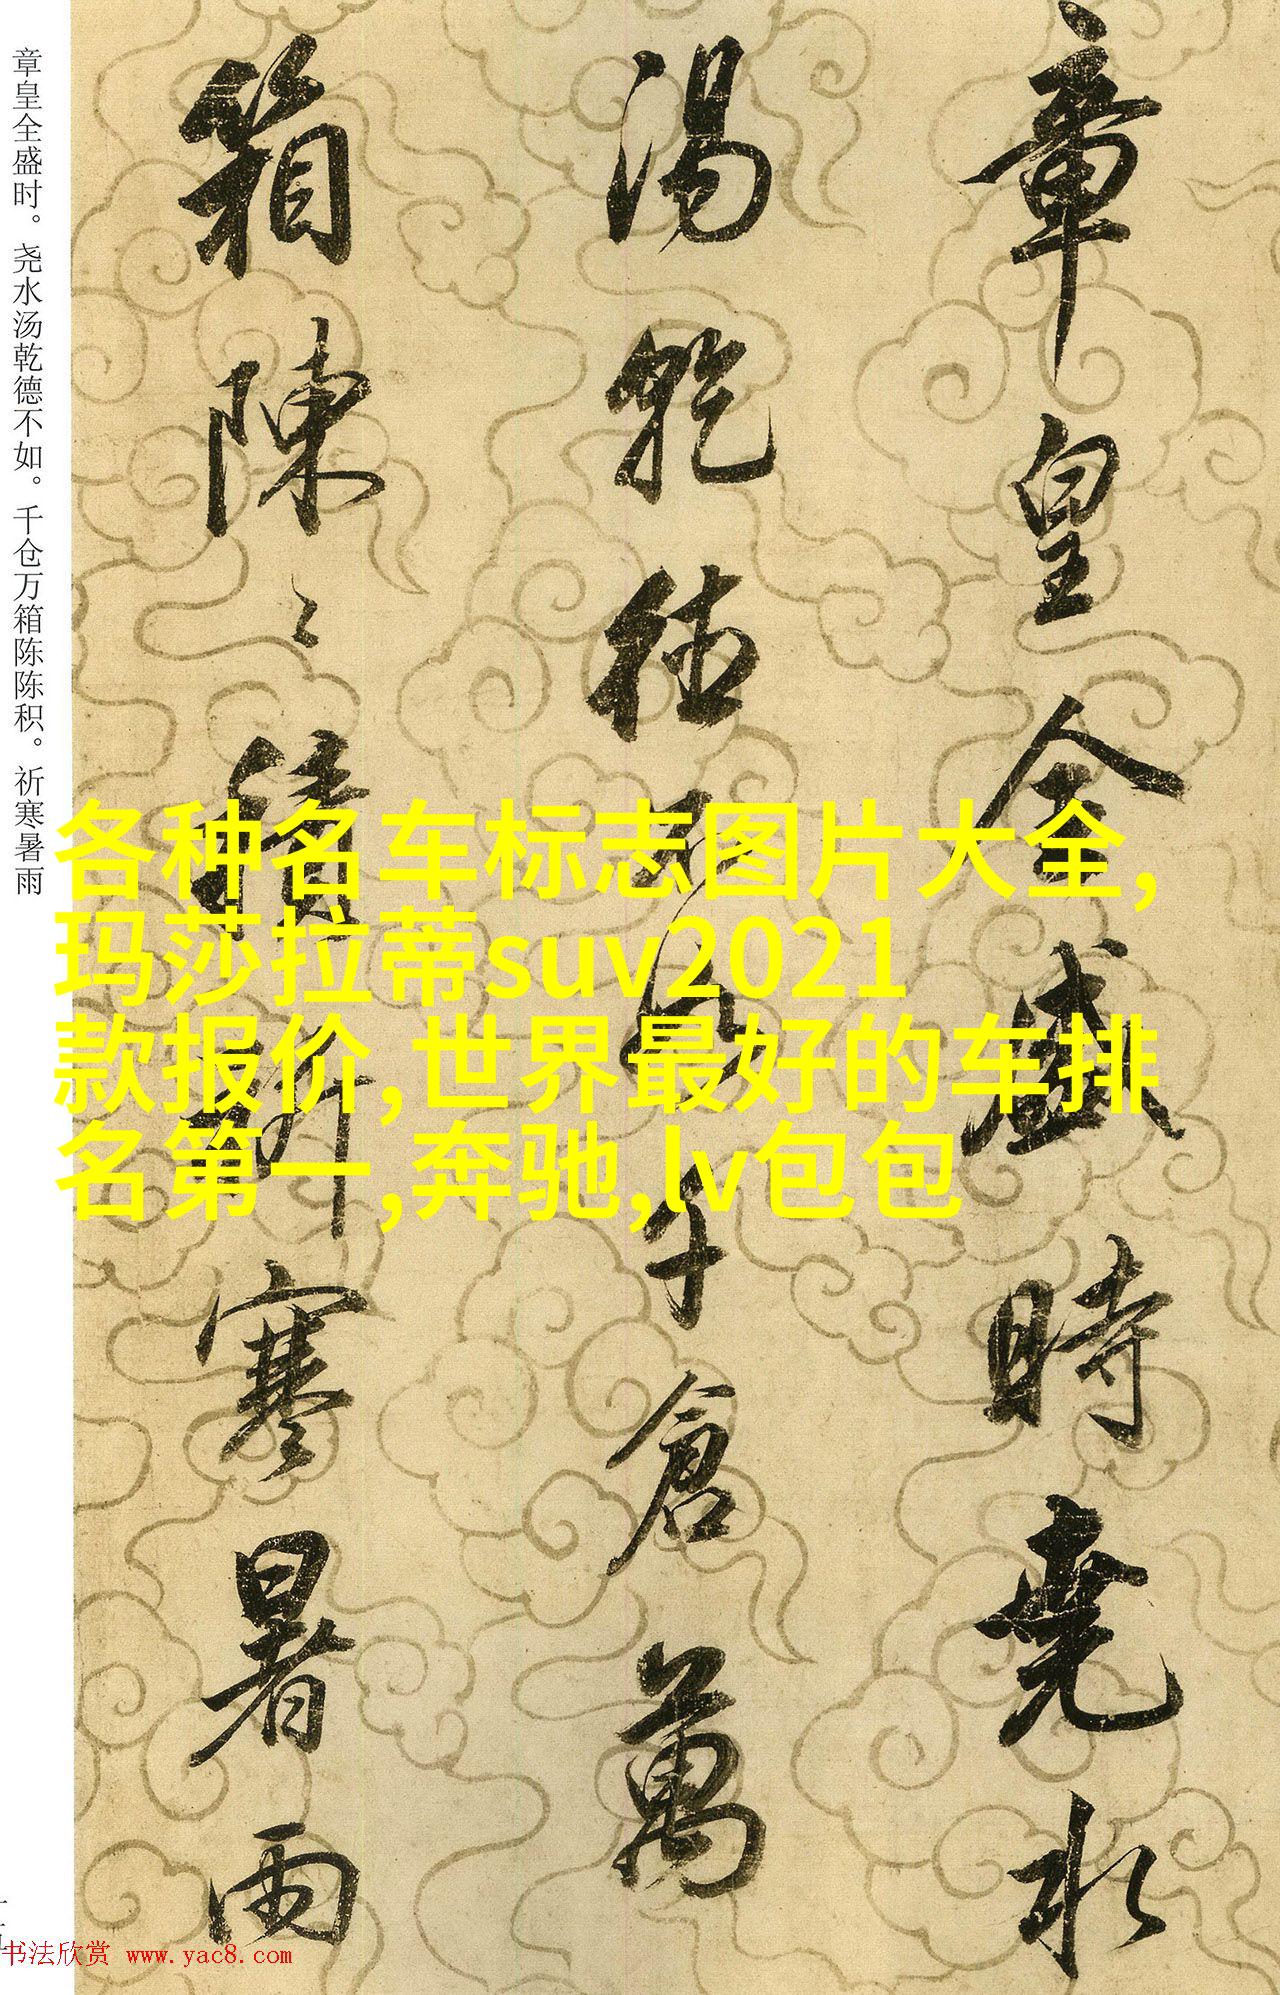 章皇全盛时。尧水汤乾德不如。千仓万箱陈陈积。祈寒暑雨
章皇全盛時堯水
湯乾德不如千倉萬
箱陳〻積祈寒暑雨
各种名车标志图片大全,
玛莎拉蒂suv2021
款报价,世界最好的车排
名第一,奔驰,lv包包
书法欣赏 www.yac8.com